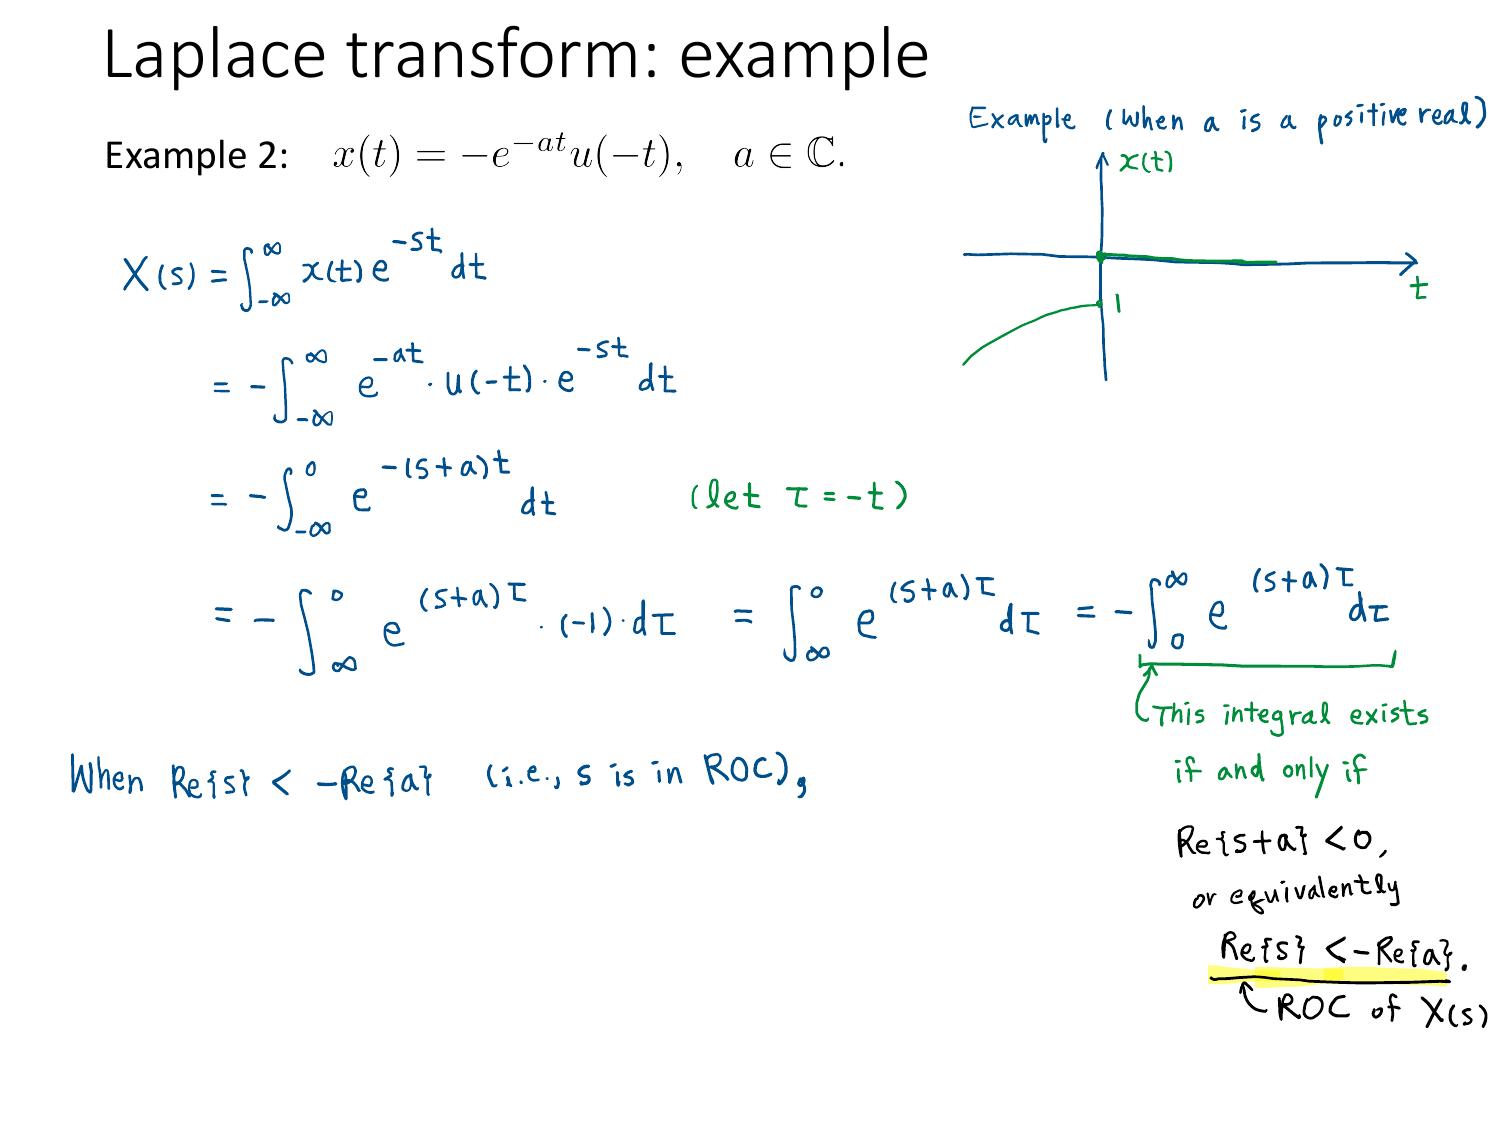 Laplace transform: example
Example (when a is a positive real)
Example 2: x(t) = −e^{−at}u(−t), a ∈ ℂ.
x(t)
t
1
X(s) = ∫_{-∞}^{∞} x(t) e^{-st} dt
= - ∫_{-∞}^{∞} e^{-at} · u(-t) · e^{-st} dt
= - ∫_{-∞}^{0} e^{-(s+a)t} dt (let τ = -t)
= - ∫_{∞}^{0} e^{(s+a)τ} · (-1) · dτ = ∫_{∞}^{0} e^{(s+a)τ} dτ = - ∫_{0}^{∞} e^{(s+a)τ} dτ
This integral exists
if and only if
Re{s+a} < 0,
or equivalently
Re{s} < -Re{a}.
ROC of X(s)
When Re{s} < -Re{a} (i.e., s is in ROC),